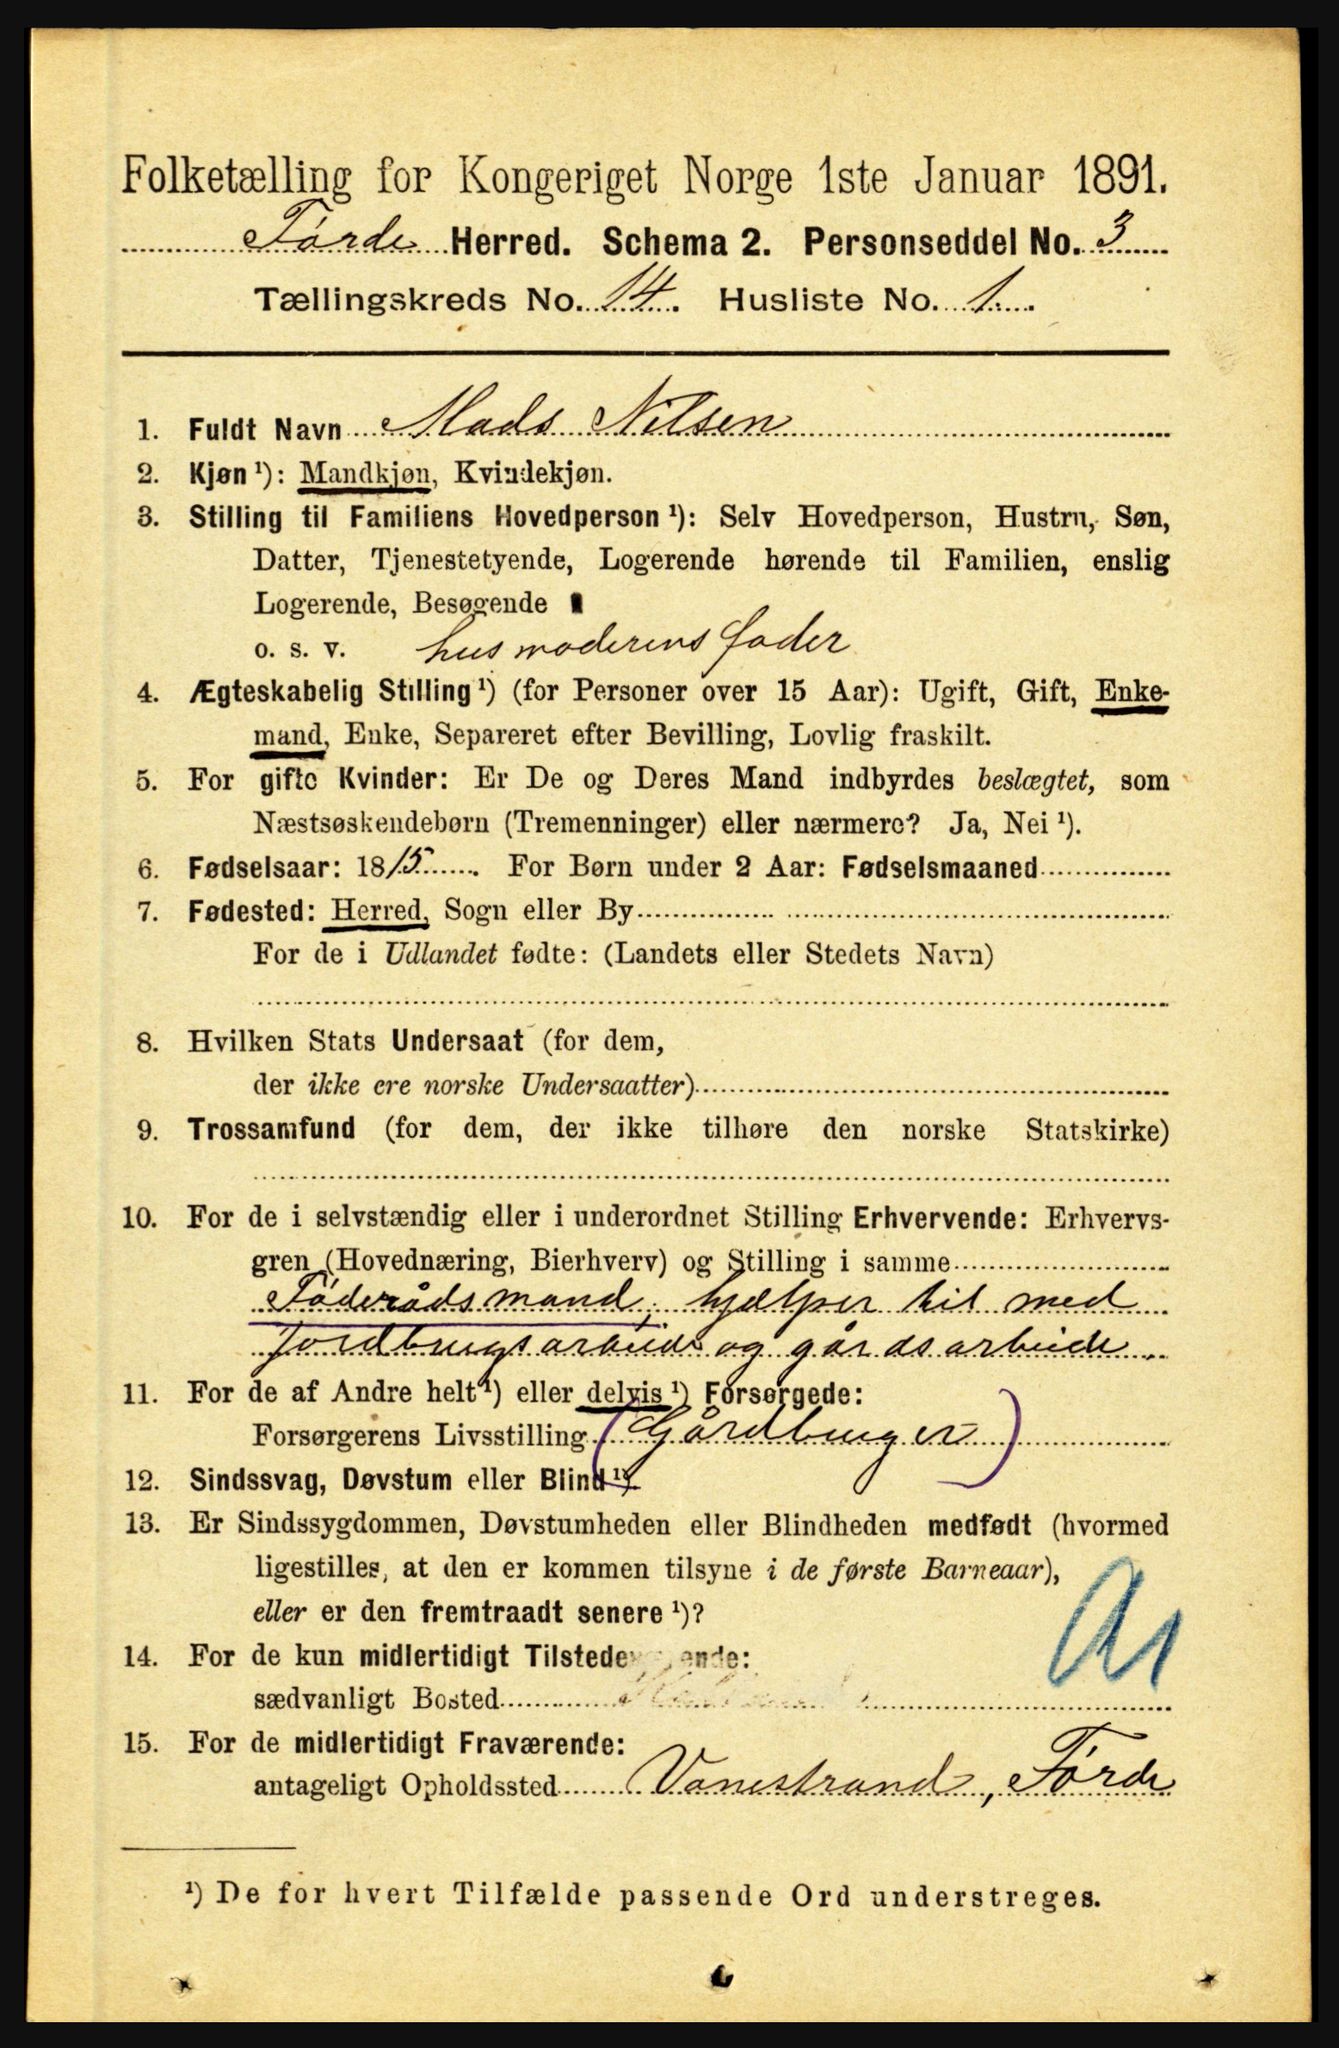 Folketælling for Kongeriget Norge 1ste Januar 1891.
Førde Herred. Schema 2. Personseddel No. 3
Tællingskreds No. 14. Husliste No. 1.
1. Fuldt Navn Mads Nilsen
2. Kjøn ¹): Mandkjøn, Kvindekjøn.
3. Stilling til Familiens Hovedperson ¹): Selv Hovedperson, Hustru, Søn,
Datter, Tjenestetyende, Logerende hørende til Familien, enslig
Logerende, Besøgende
o. s. v. husmoderens fader
4. Ægteskabelig Stilling ¹) (for Personer over 15 Aar): Ugift, Gift, Enke-
mand, Enke, Separeret efter Bevilling, Lovlig fraskilt.
5. For gifte Kvinder: Er De og Deres Mand indbyrdes beslægtet, som
Næstsøskendebørn (Tremenninger) eller nærmere? Ja, Nei ¹).
6. Fødselsaar: 1815. For Børn under 2 Aar: Fødselsmaaned
7. Fødested: Herred, Sogn eller By
For de i Udlandet fødte: (Landets eller Stedets Navn)
8. Hvilken Stats Undersaat (for dem,
der ikke ere norske Undersaatter)
9. Trossamfund (for dem, der ikke tilhøre den norske Statskirke)
10. For de i selvstændig eller i underordnet Stilling Erhvervende: Erhvervs-
gren (Hovednæring, Bierhverv) og Stilling i samme
Föderådsmand, hjælper til med
jordbrugsarbeide og gårdsarbeide.
11. For de af Andre helt ¹) eller delvis ¹) Forsørgede:
Forsørgerens Livsstilling (Gårdbruger)
12. Sindssvag, Døvstum eller Blind ¹).
13. Er Sindssygdommen, Døvstumheden eller Blindheden medfødt (hvormed
ligestilles, at den er kommen tilsyne i de første Barneaar),
eller er den fremtraadt senere ¹)?
14. For de kun midlertidigt Tilstedeværende:
sædvanligt Bosted
15. For de midlertidigt Fraværende:
antageligt Opholdssted Vonestrand, Førde
¹) De for hvert Tilfælde passende Ord understreges.